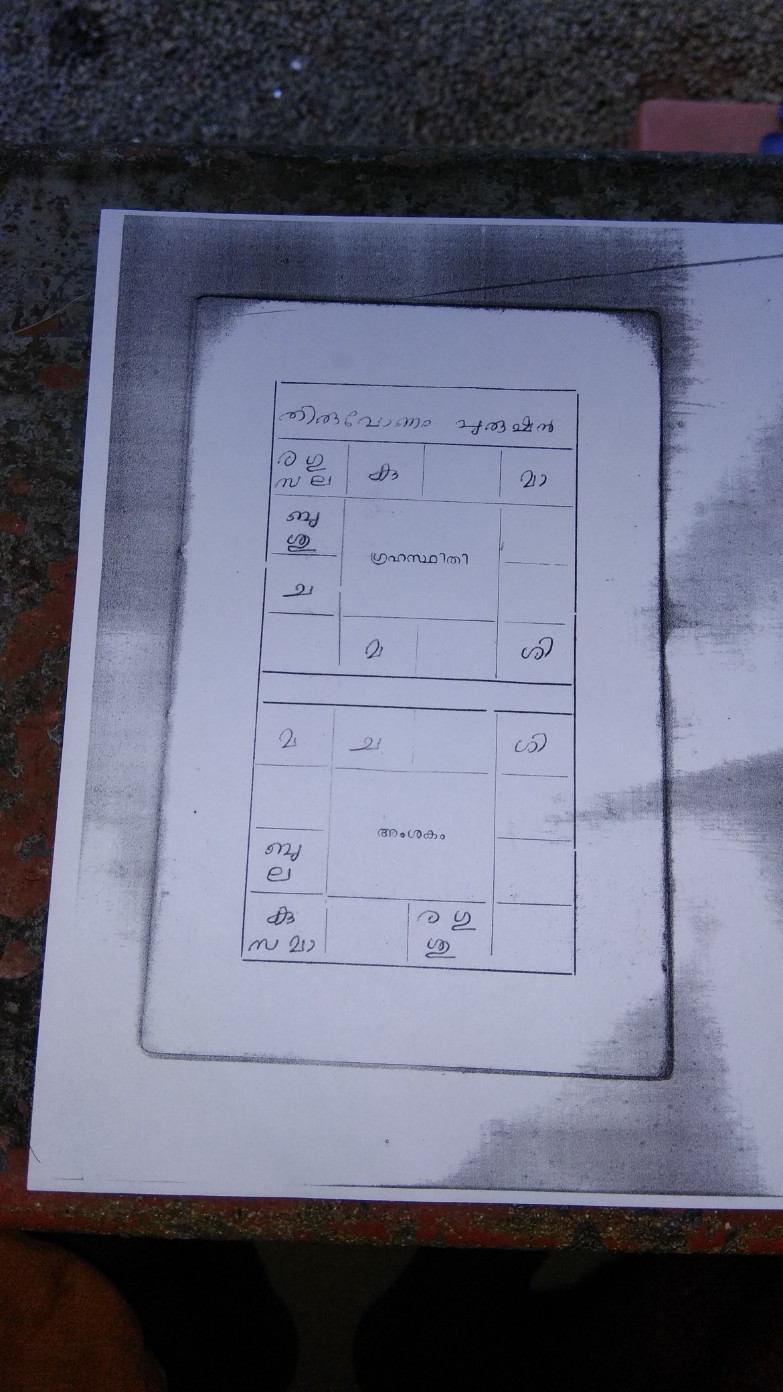 തിരുവോണം പുരുഷൻ
ര ഗു
സ ല
കു
മാ
ബു
ശു
ഗ്രഹസ്ഥിതി
ച
മ
ശി
മ
ച
ശി
അംശകം
ബു
ല
കു
സ മാ
ര ഗു
ശു